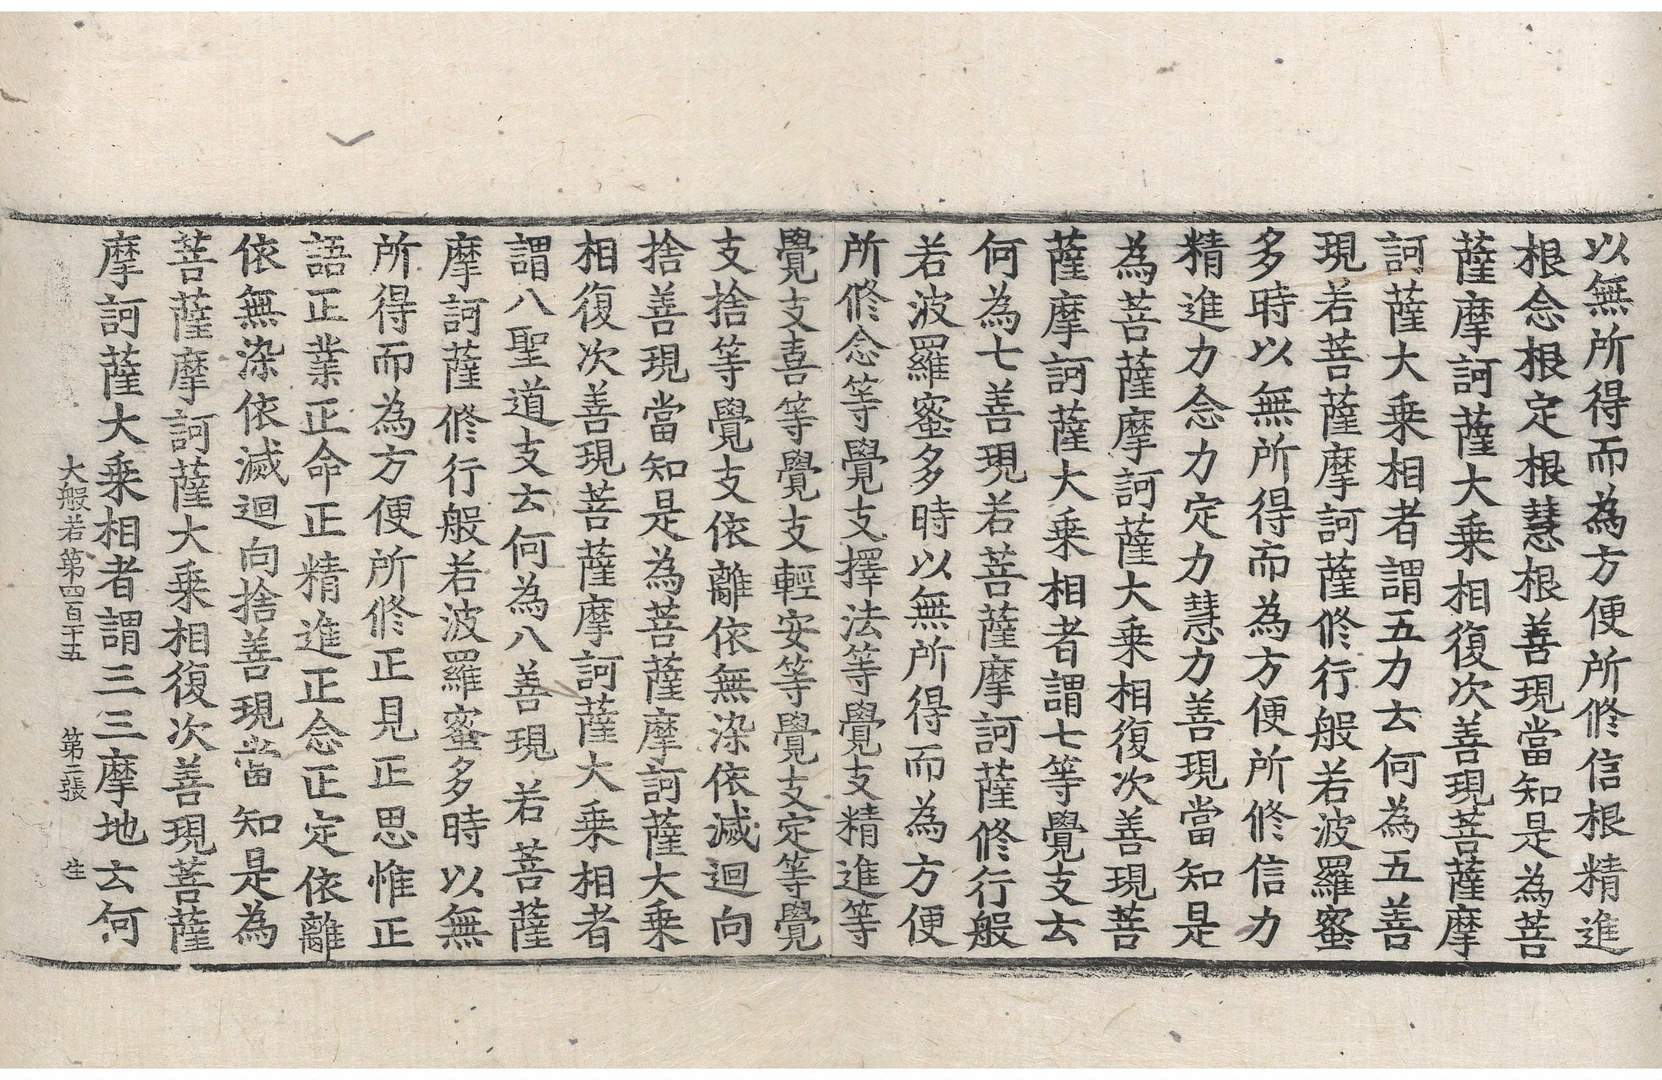 以無所得而為方便所修信根精進
根念根定根慧根善現當知是為菩
薩摩訶薩大乘相復次善現菩薩摩
訶薩大乘相者謂五力云何為五善
現若菩薩摩訶薩修行般若波羅蜜
多時以無所得而為方便所修信力
精進力念力定力慧力善現當知是
為菩薩摩訶薩大乘相復次善現菩
薩摩訶薩大乘相者謂七等覺支云
何為七善現若菩薩摩訶薩修行般
若波羅蜜多時以無所得而為方便
所修念等覺支擇法等覺支精進等
覺支喜等覺支輕安等覺支定等覺
支捨等覺支依離依無染依滅迴向
捨善現當知是為菩薩摩訶薩大乘
相復次善現菩薩摩訶薩大乘相者
謂八聖道支云何為八善現若菩薩
摩訶薩修行般若波羅蜜多時以無
所得而為方便所修正見正思惟正
語正業正命正精進正念正定依離
依無染依滅迴向捨善現當知是為
菩薩摩訶薩大乘相復次善現菩薩
摩訶薩大乘相者謂三三摩地云何
大般若第四百十五 第二張